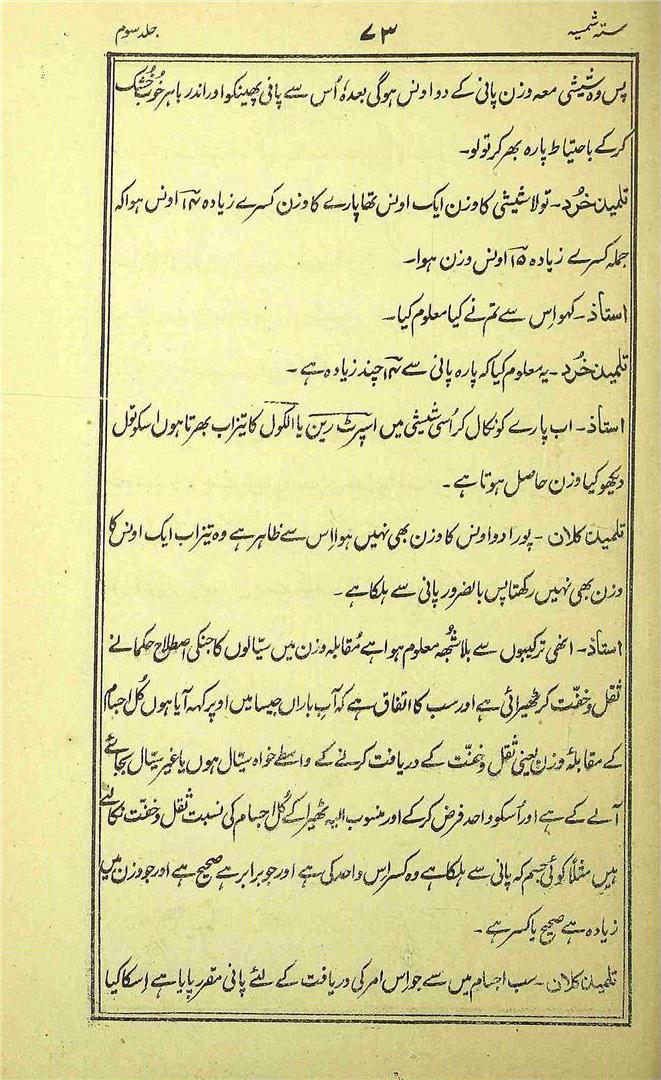 ستہ شمسیہ ۷۳ جلد سوم
پس وہ شیشی معہ وزن پانی کے دو اونس ہوگی بعدہٗ اُس سے پانی پھینکو اور اندر باہر خوب خشک
کر کے باحتیاط پارہ بھر کر تولو۔
تلمیذ خُرد۔ تولا شیشی کا وزن ایک اونس تھا پارے کا وزن کسرے زیادہ ۱۴ اونس ہوا کہ
جملہ کسرے زیادہ ۱۵ اونس وزن ہوا۔
استاذ۔ کہو اِس سے تم نے کیا معلوم کیا۔
تلمیذ خُرد۔ یہ معلوم کیا کہ پارہ پانی سے ۱۴ چند زیادہ ہے۔
استاذ۔ اب پارے کو نکال کر اُسی شیشی میں اسپرٹ رین یا الکول کا تیزاب بھرتا ہوں اسکو تول
دیکھو کیا وزن حاصل ہوتا ہے۔
تلمیذ کلان۔ پورا دو اونس کا وزن بھی نہیں ہوا اِس سے ظاہر ہے وہ تیزاب ایک اونس کا
وزن بھی نہیں رکھتا پس بالضرور پانی سے ہلکا ہے۔
استاذ۔ انھی ترکیبوں سے بلاشُبھہ معلوم ہوا ہے مُقابلہ وزن میں سیّالوں کا جنکی اصطلاح حکما نے
ثقل و خفّت کر ٹھیرائی ہے اور سب کا اتفاق ہے کہ آبِ باراں جیسا میں اوپر کہہ آیا ہوں کُل اجسام
کے مقابلۂ وزن یعنی ثقل و خفّت کے دریافت کرنے کے واسطے خواہ سیّال ہوں یا غیر سیّال بجائے
آلے کے ہے اور اُسکو واحد فرض کر کے اور منسوب الیہ ٹھیرا کے کُل اجسام کی نسبت ثقل و خفّت نکالتے
ہیں مثلاً کوئی جسم کہ پانی سے ہلکا ہے وہ کسر اِس واحد کی ہے اور جو برابر ہے صحیح ہے اور جو وزن میں
زیادہ ہے صحیح با کسر ہے۔
تلمیذ کلان۔ سب اجسام میں سے جو اِس امر کی دریافت کے لئے پانی مقرر پایا ہے اِسکا کیا